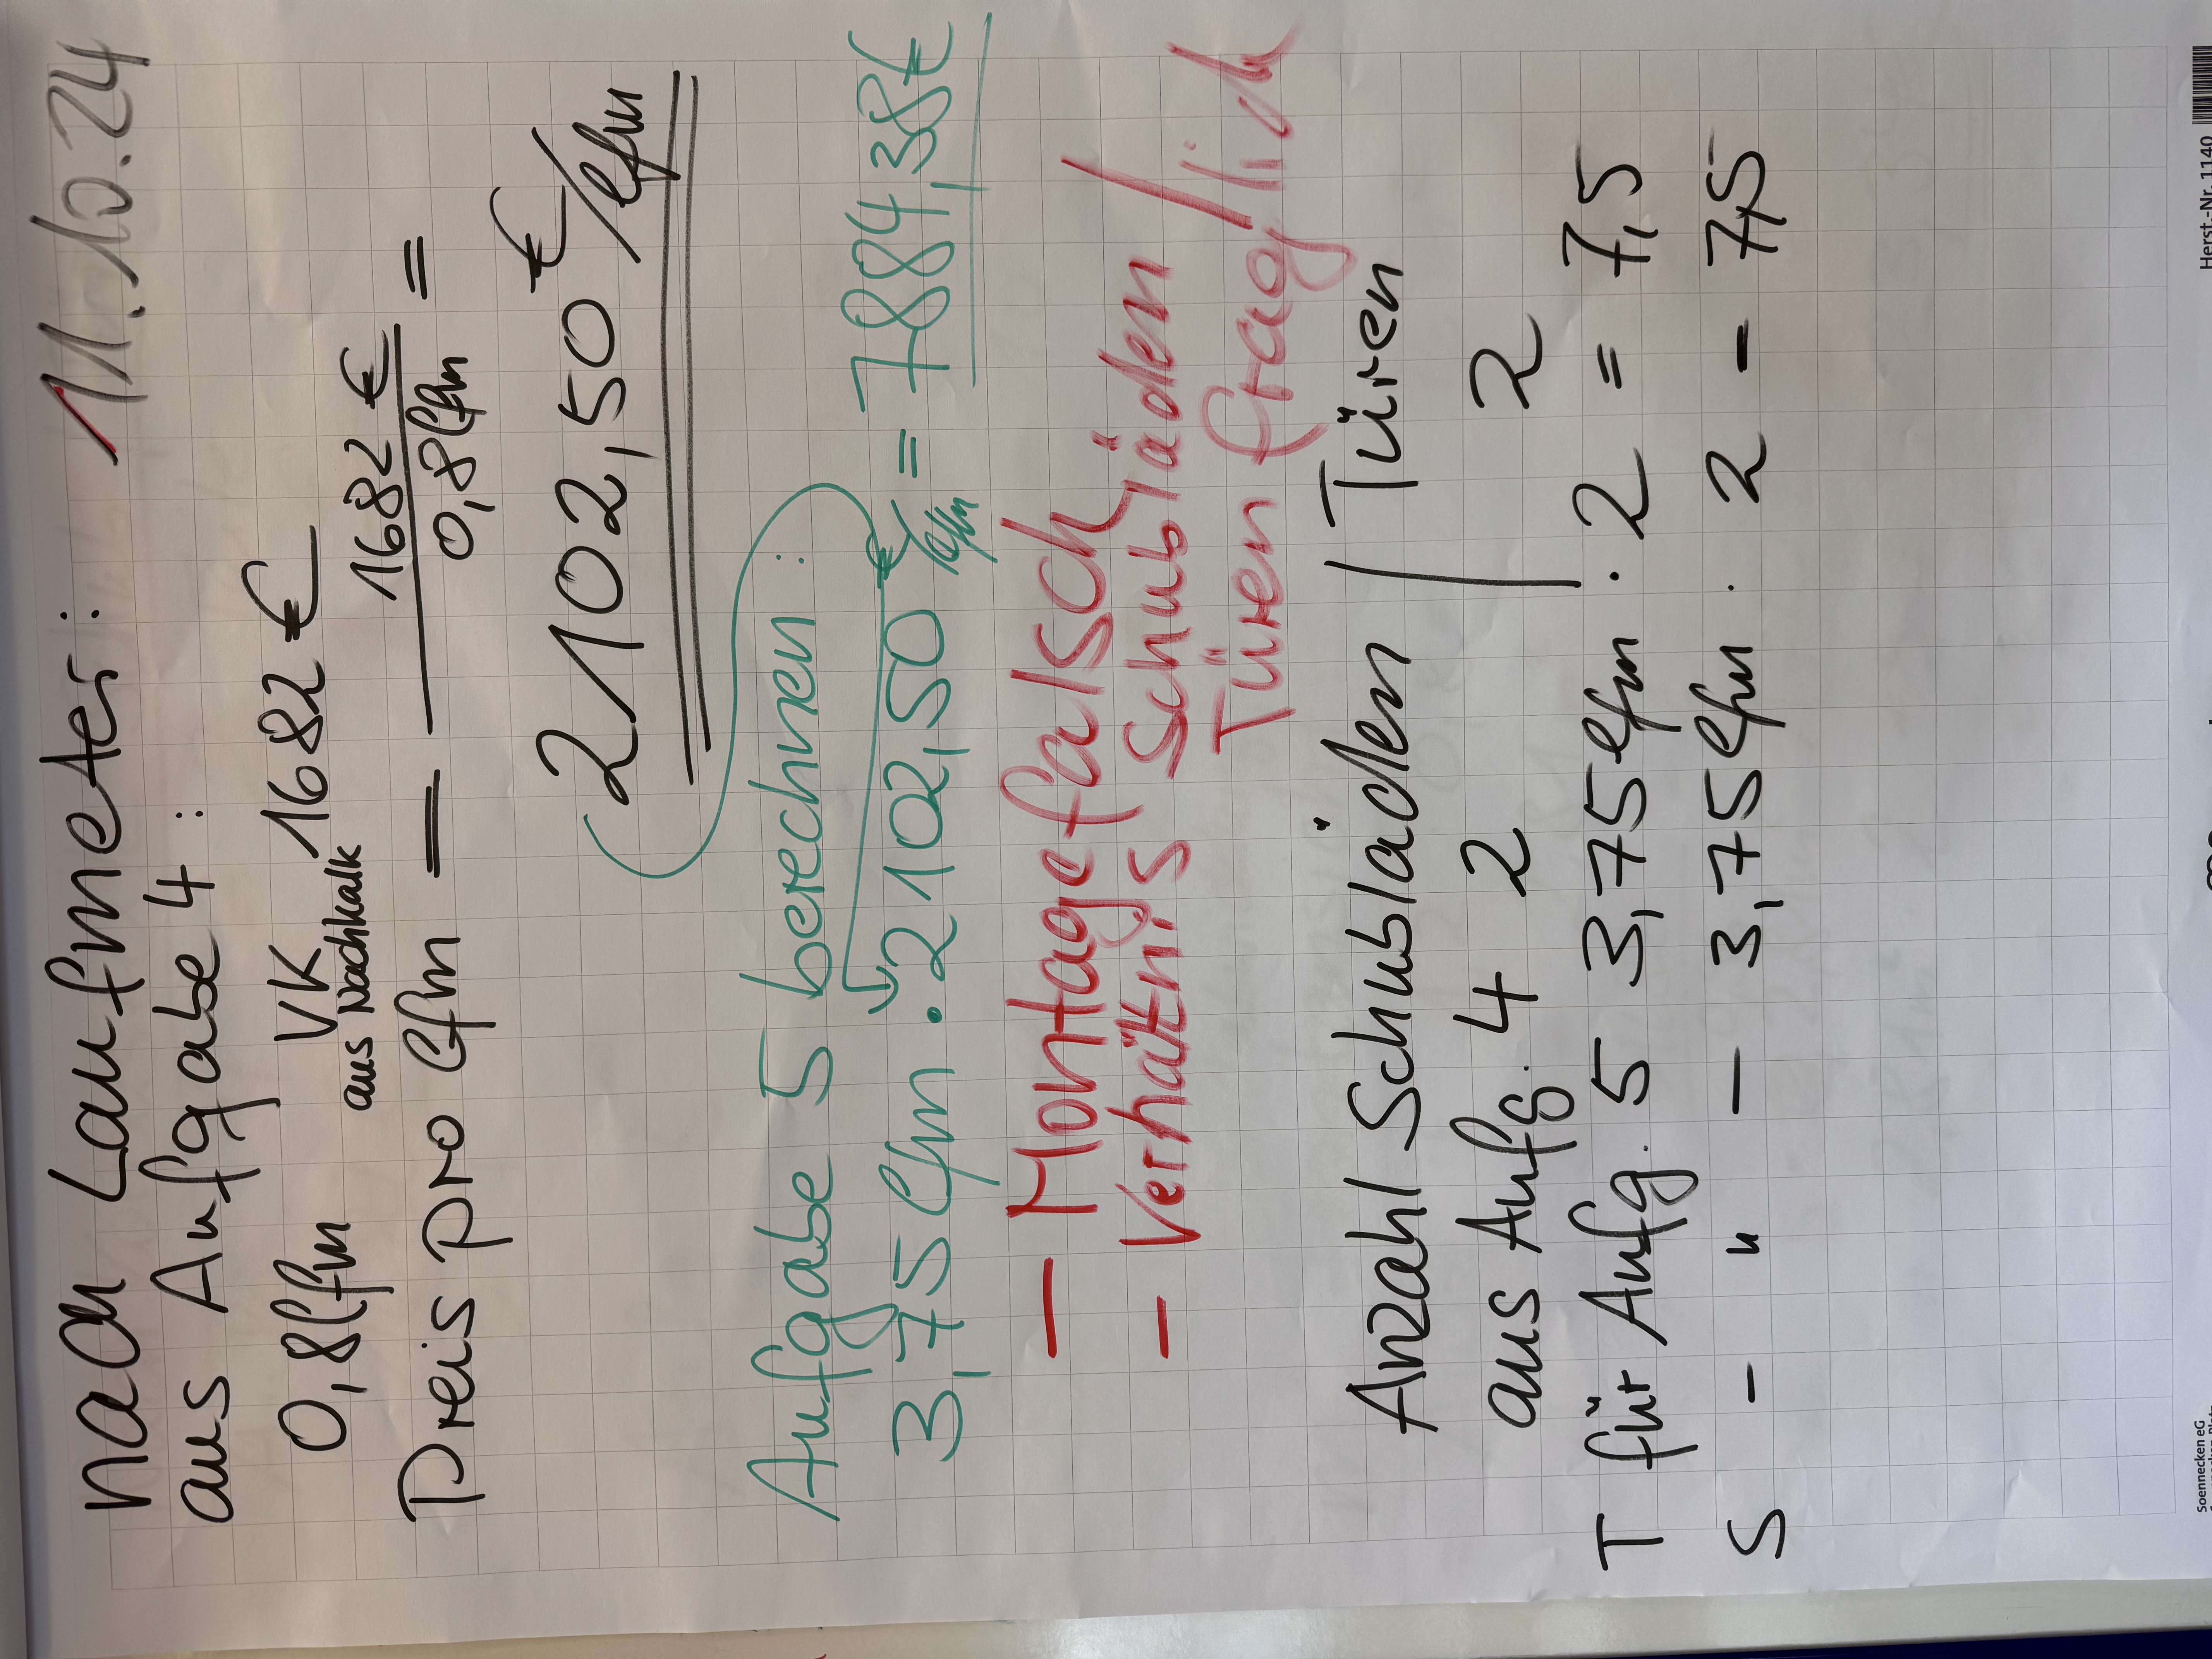 nach Laufmeter: 11.10.24
aus Aufgabe 4:
0,8lfm VK 1682 €
aus Nachkalk
Preis pro lfm = 1682 € / 0,8lfm =
2102,50 €/lfm
Aufgabe 5 berechnen:
3,75 lfm · 2102,50 €/lfm = 7884,38€
– Montage falsch
– Verhältnis Schubläden /
Türen fraglich
Anzahl Schubläden | Türen
aus Aufg. 4 2 2
T für Aufg. 5 3,75lfm · 2 = 7,5
S – " – 3,75lfm · 2 = 7,5
Soennecken eG
Herst.-Nr. 1140